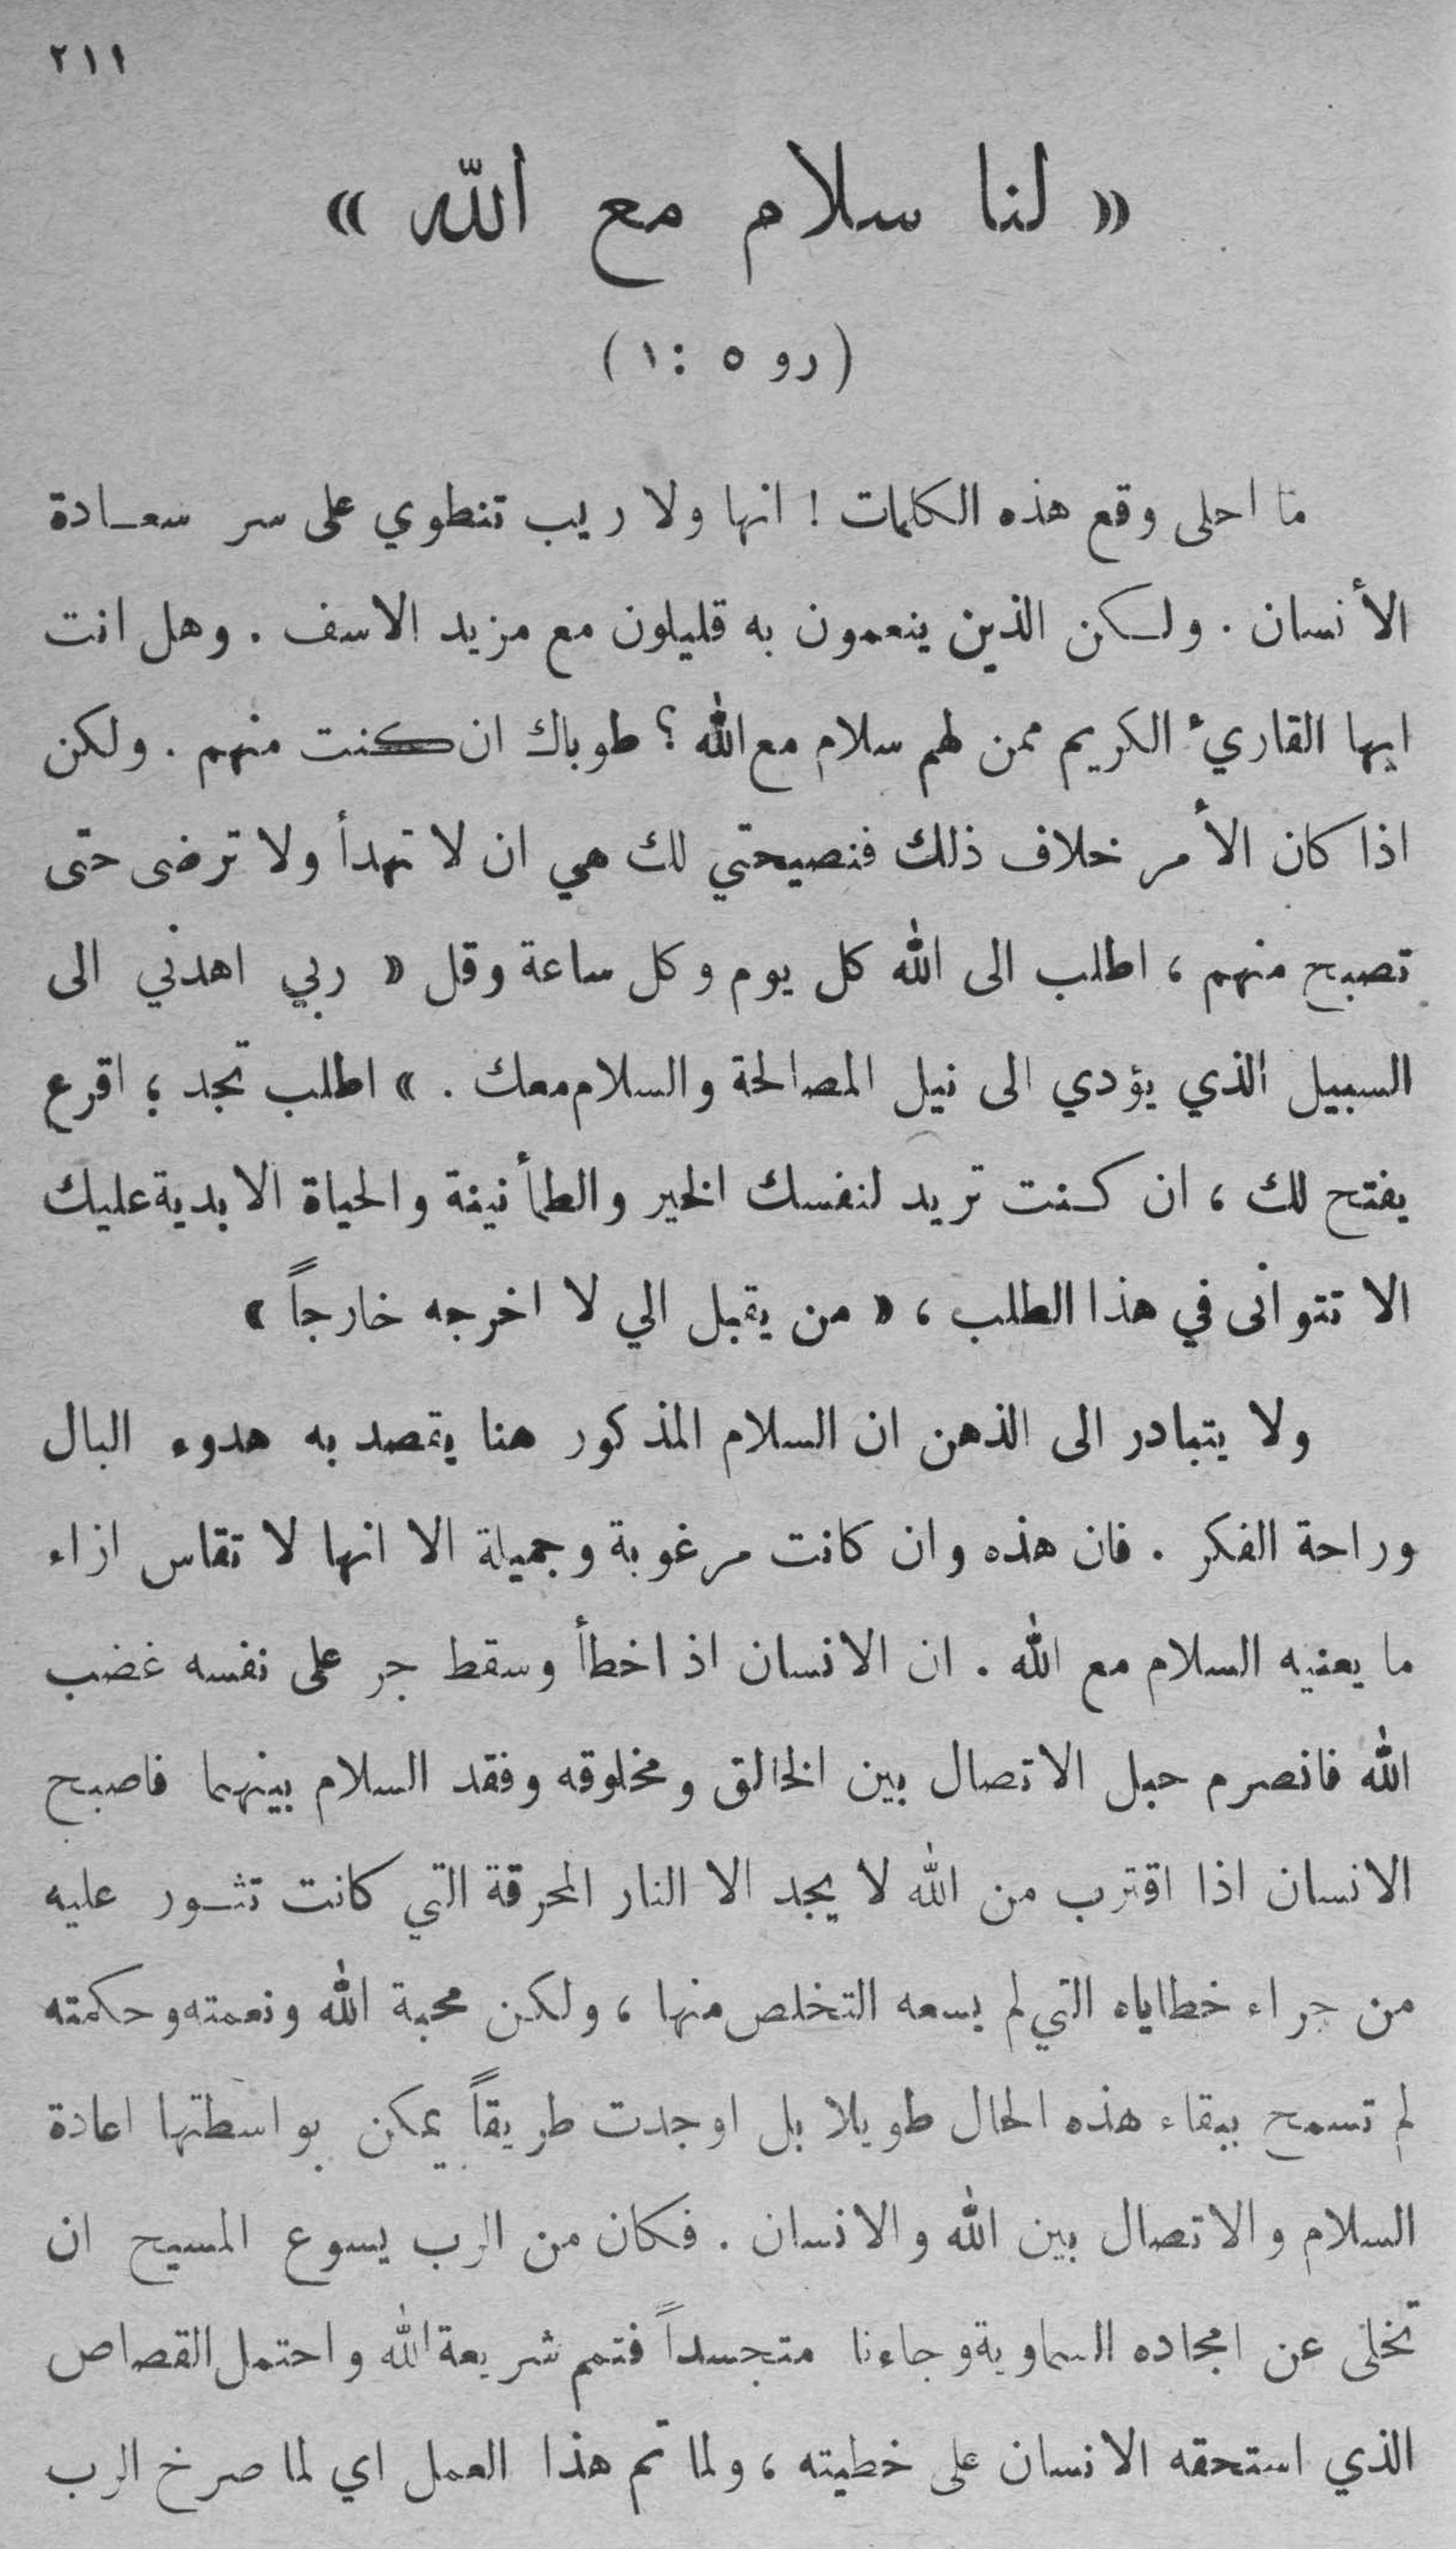 ٢١١
« لنا سلام مع الله »
( رو ٥ : ١ )
ما احلى وقع هذه الكلمات ! انها ولا ريب تنطوي على سر سعادة
الأنسان . ولكن الذين ينعمون به قليلون مع مزيد الاسف . وهل انت
ايها القاريء الكريم ممن لهم سلام مع الله ؟ طوباك ان كنت منهم . ولكن
اذا كان الأمر خلاف ذلك فنصيحتي لك هي ان لا تهدأ ولا ترضى حتى
تصبح منهم ، اطلب الى الله كل يوم وكل ساعة وقل « ربي اهدني الى
السبيل الذي يؤدي الى نيل المصالحة والسلام معك . » اطلب تجد ؛ اقرع
يفتح لك ، ان كنت تريد لنفسك الخير والطأنينة والحياة الابدية عليك
الا تتوانى في هذا الطلب ، « من يقبل الي لا اخرجه خارجاً »
ولا يتبادر الى الذهن ان السلام المذكور هنا يقصد به هدوء البال
وراحة الفكر . فان هذه وان كانت مرغوبة وجميلة الا انها لا تقاس ازاء
ما يعنيه السلام مع الله . ان الانسان اذ اخطأ وسقط جر على نفسه غضب
الله فانصرم حبل الاتصال بين الخالق ومخلوقه وفقد السلام بينهما فاصبح
الانسان اذا اقترب من الله لا يجد الا النار المحرقة التي كانت تثور عليه
من جراء خطاياه التي لم يسعه التخلص منها ، ولكن محبة الله ونعمته وحكمته
لم تسمح ببقاء هذه الحال طويلا بل اوجدت طريقاً يمكن بواسطتها اعادة
السلام والاتصال بين الله والانسان . فكان من الرب يسوع المسيح ان
تخلى عن امجاده السماوية وجاءنا متجسداً فتمم شريعة الله واحتمل القصاص
الذي استحقه الانسان على خطيته ، ولما تم هذا العمل اي لما صرخ الرب